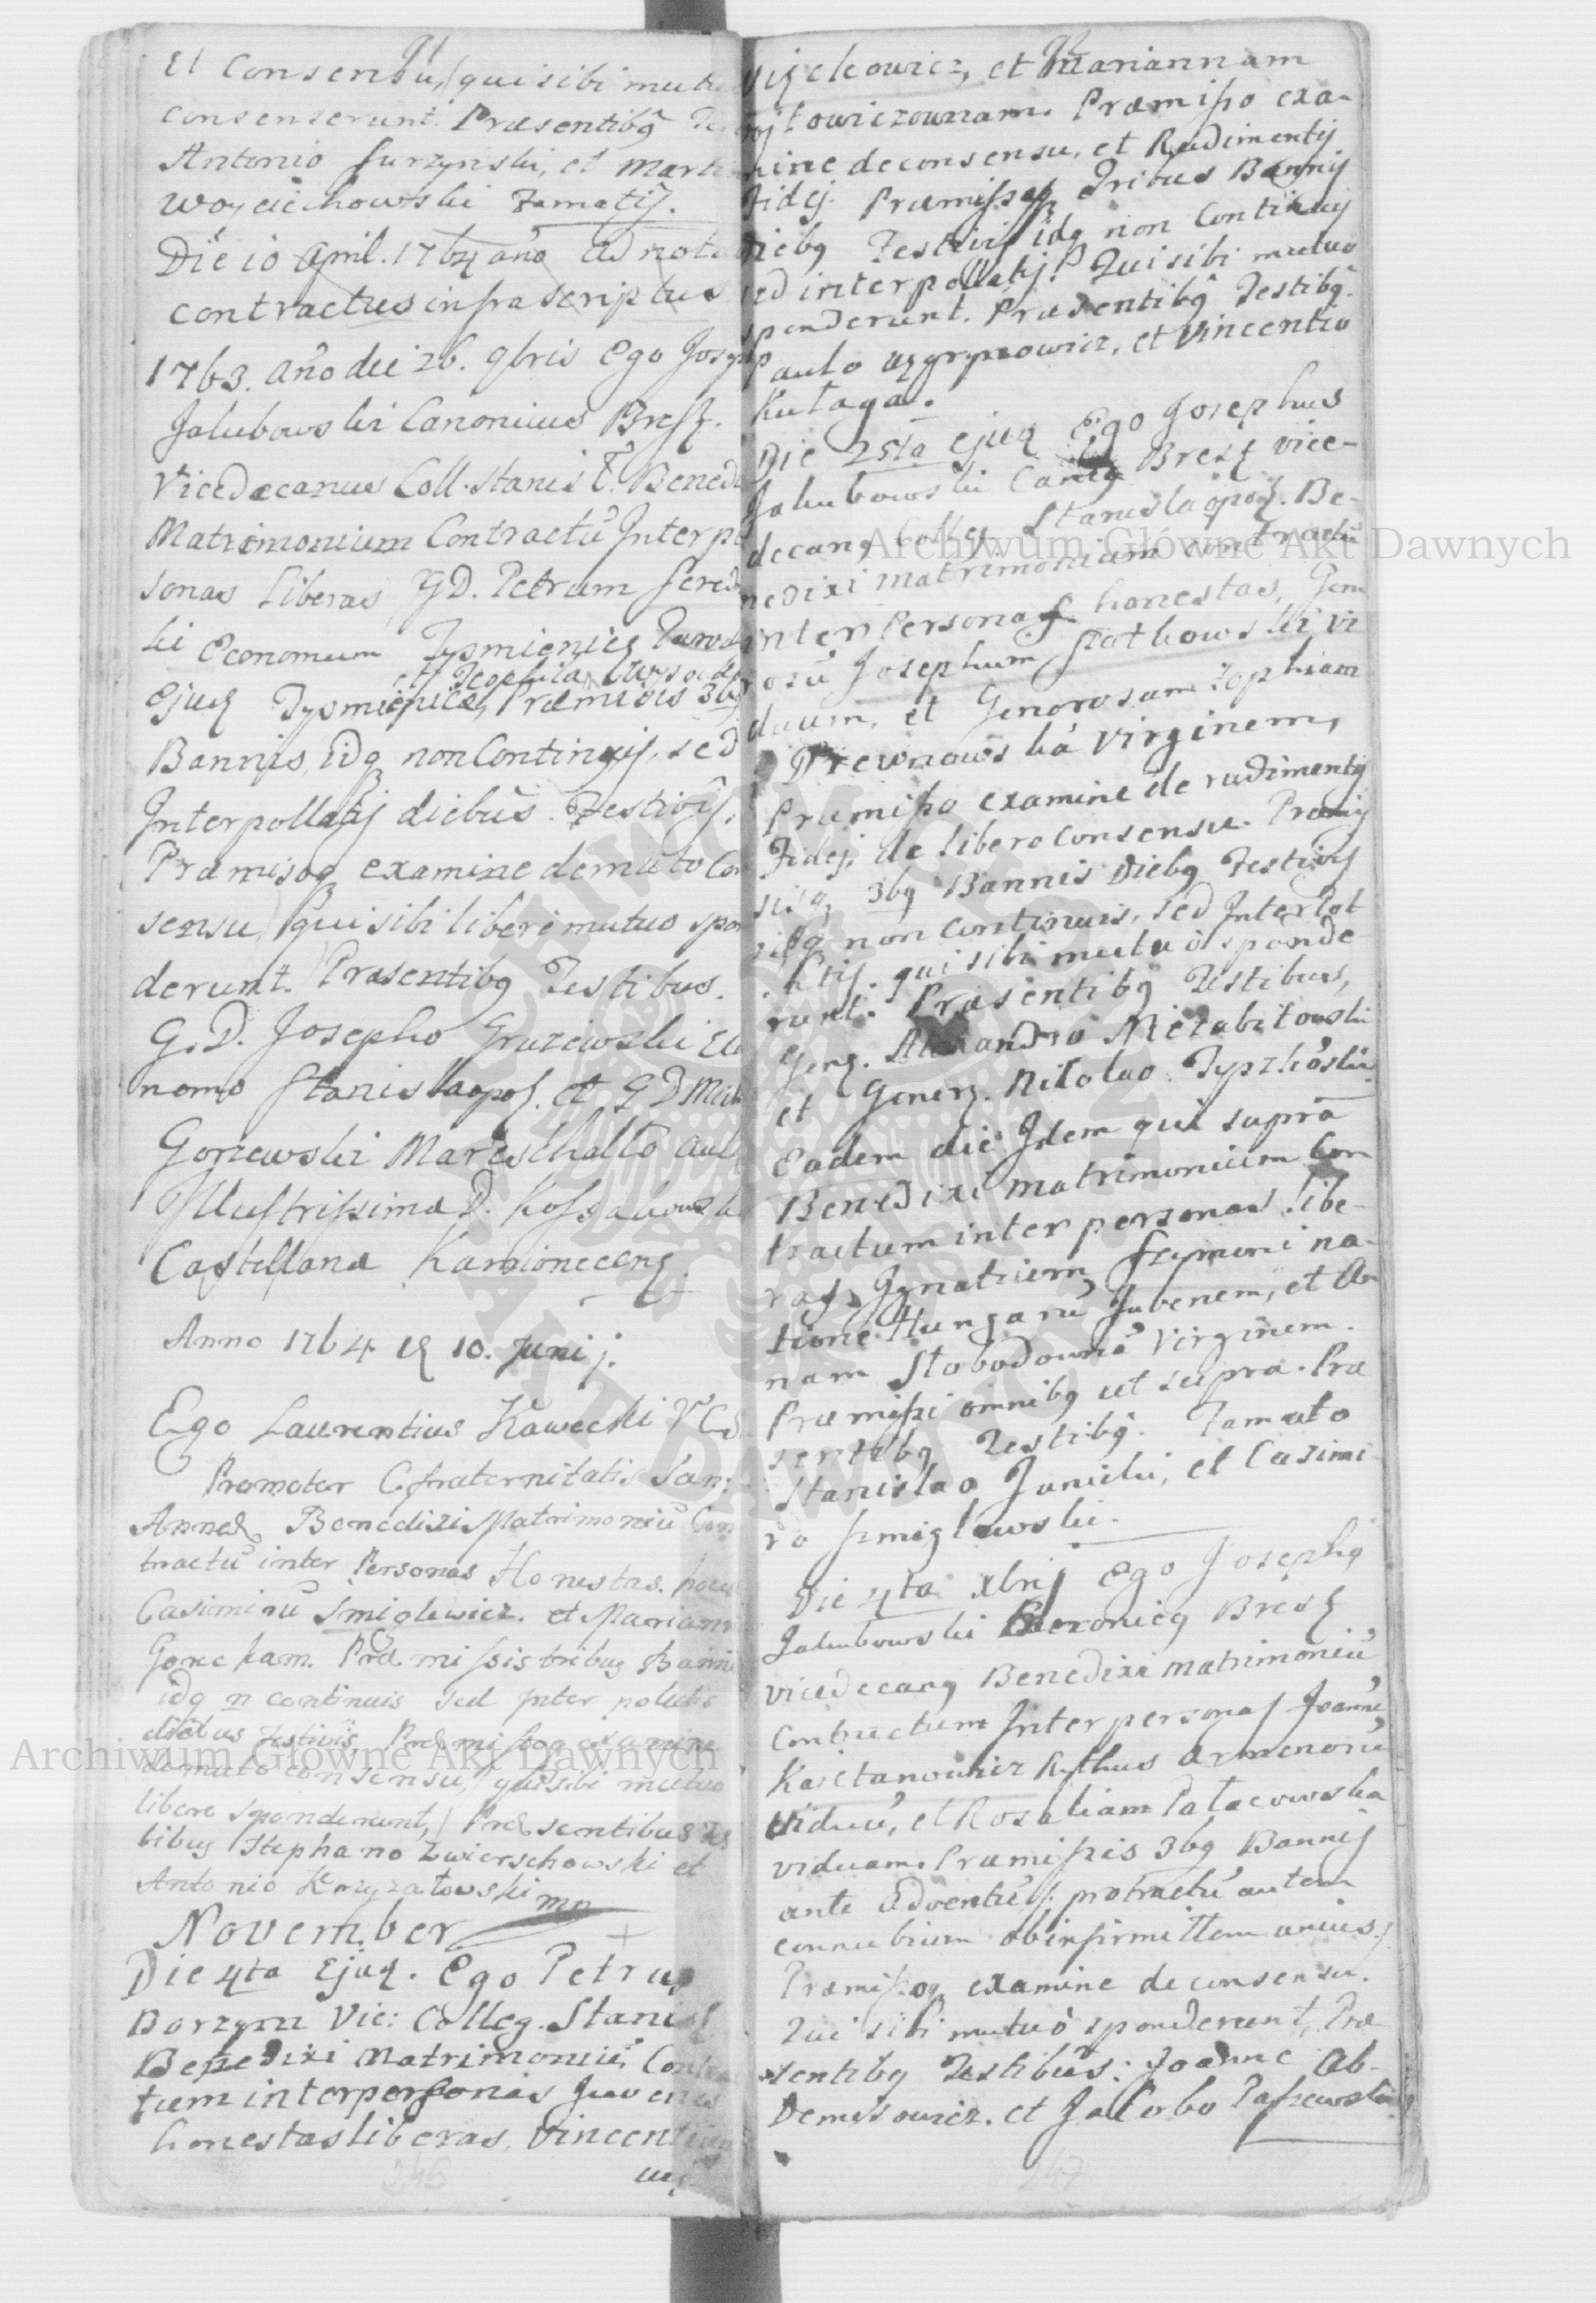 Et Consensu, qui sibi mutu
consenserunt. Præsentibq
Antonio Surzynski, et Mart
Woyciechowski Famatis.
Die 10 April. 1764 año Adnot
contractus infrascriptus
1763. año die 26. 9bris Ego Joseph
Jakubowski Canonicus Bresz.
Vicedecanus Coll. Stanis Benedi
Matrimonium Contractū Inter pe
sonas Liberas GD. Petrum
ki Economum Tysmienicz
et Teophila
Ejusq Tysmienicæ, Præmissis 3bq
Bannis, idq non Continuis, sed
Interpollatis diebus Festivis.
Præmisoq examine de mutuo Con
sensu qui sibi liberè mutuo spon
derunt. Præsentibq Testibus.
G. D. Josepho Gruzewski Eco
nomo Stanislaopol. et G D Mich
Gorzewski Mareschallo aul
Illustrissimæ D. Kossakowsk
Castellanæ Kamionecens.
Anno 1764 10. Junij.
Ego Laurentius Kawecki V C S
Promotor Cfraternitatis San:
Annæ Benedixi Matrimoniū Con
tractū inter Personas Honestas.
Casimirū Smiglewicz. et Mariann
Goreckam. Præmissis tribus Banni
idq n continuis sed Inter polatis
diebus festivis, Præmissoq examine
de mutuo consensu, qui sibi mutuo
libere sponderunt, Præsentibus Tes
tibus Stephano Zwierschowski et
Antonio Krzyzatowski mp
November
Die 4ta Ejusq. Ego Petrus
Borzym Vic: Colleg. Stanisl
Benedixi Matrimoniū Contrac
tum inter personas Juvenes
honestas liberas, Vincentium
246
et Mariannam
towiczownam. Præmisso exa-
mine de consensu, et Rudimentis
Fidej. Præmissisq Tribus Bannis
diebq Festivis idq non Continuis
sed interpollatis. Qui sibi mutuo
sponderunt. Præsentibq Testibq.
Paulo et Vincentio
Kutaga.
Die 25ta ejusq Ego Josephus
Jakubowski Canq Bresz vice-
decanq Colleg Stanislaopol. Be-
nedixi matrimonium contractū
inter Personas honestas, Gene
rosū Josephum vi
duum, et Generosam Zophiam
Drewnowská virginem,
Præmisso examine de rudimentis
Fidej, de libero consensu. Præmis
sisq 3bq Bannis Diebq Festivis
idq non continuis, sed Interpol
latis. qui sibi mutuò sponde
runt. Præsentibq Testibus,
Genq. Alexandro Niezabitowski
et Generq. Nikolao
Eadem die Idem qui suprà
Benedixi matrimonium con
tractum inter personas libe-
ras, Ignatium Szymoni na-
tione Hungarū Juvenem, et An
nam Słobodownā Virginem.
Præmissi omnibq ut supra. Præ
sentibq Testibq. Famato
Stanislao Janicki, et Casimi-
ro Szmiglewski.
Die 4ta Xbris Ego Josephq
Jakubowski Canonicq Bresz
vicedecanq Benedixi matrimoniū
contractum Inter personas Joanne
Kaietanowicz Rythus Armenorū
viduū, et Rosaliam
viduam. Præmissis 3bq Bannis
ante Adventū protractū autem
connubium ob infirmittem unius.
Præmissoq examine de consensu.
Qui sibi mutuò sponderunt. Præ
sentibq Testibus: Joanne Ab-
Demesowicz. et Jacobo
247
Archiwum Główne Akt Dawnych
Archiwum Główne Akt Dawnych